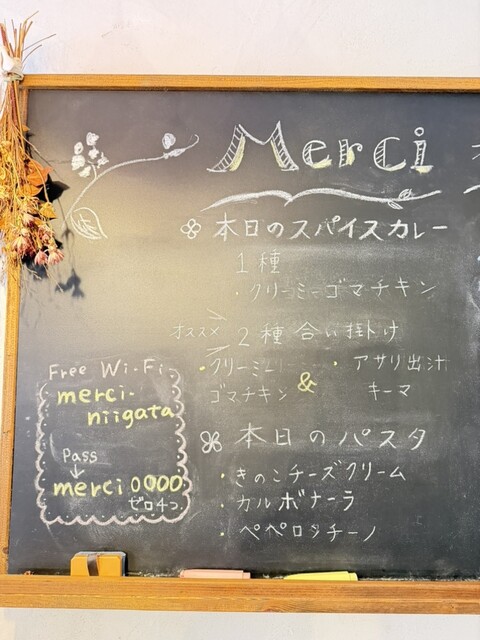 Merci
本日のスパイスカレー
1種
・クリーミーゴマチキン
オススメ 2種合い掛け
・クリーミー ・アサリ出汁
ゴマチキン & キーマ
本日のパスタ
・きのこチーズクリーム
・カルボナーラ
・ペペロッチーノ
Free Wi-Fi.
merci-
niigata
Pass
↓
merci0000
ゼロ4つ.